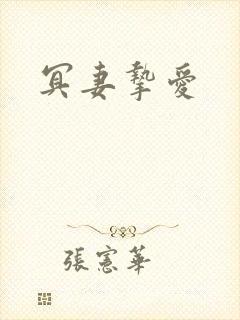 冥妻摯愛
張憲華